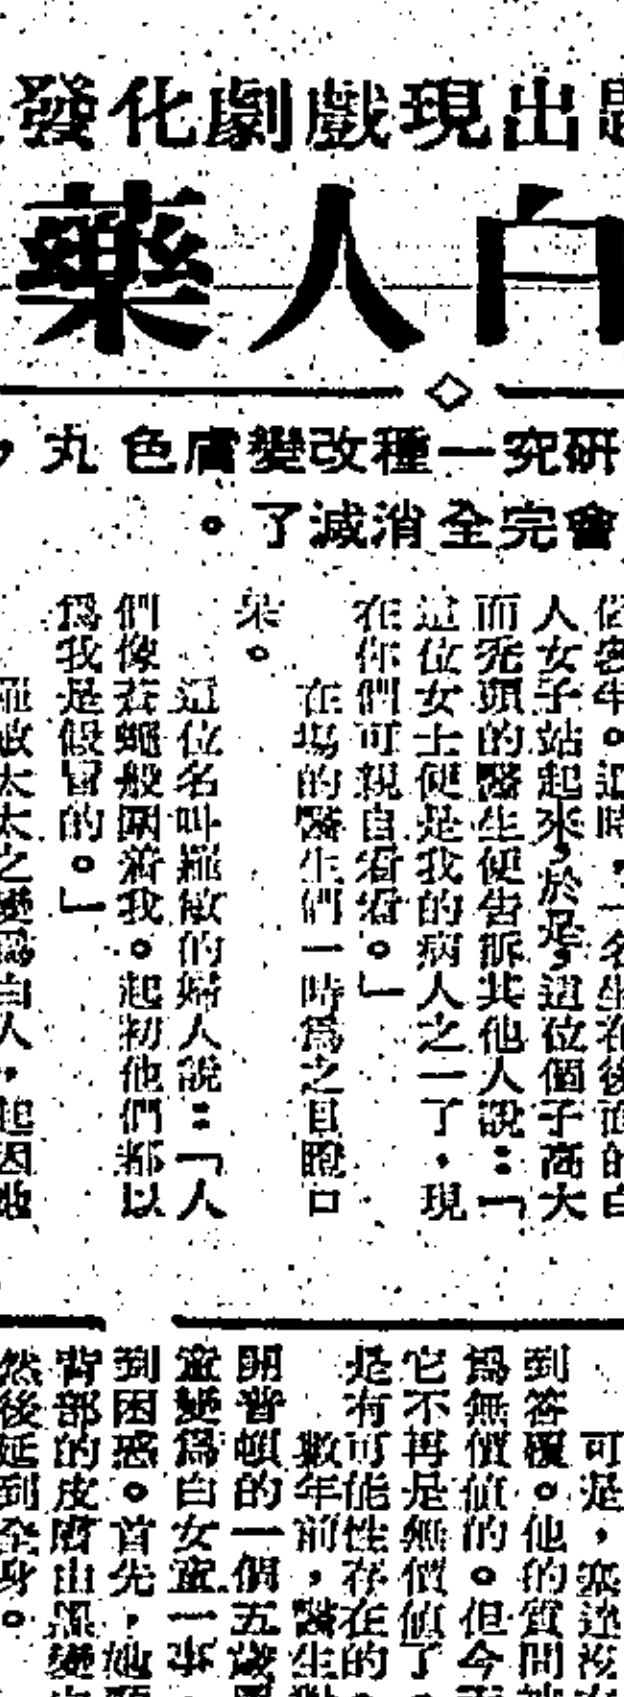 發化劇戲現出
藥人白
丸色膚變改種一究研
。了滅消全完會
年。這時,一名坐在後面的白
人女子站起來,於是,這位個子高大
而禿頭的醫生便告訴其他人說:「
這位女士便是我的病人之一了,現
在你們可親自看看。」
在場的醫生們一時爲之目瞪口
呆。
這位名叫羅敏的婦人說:「人
們像蒼蠅般圍着我。起初他們都以
爲我是假冒的。」
羅敏太太之變爲白人,起因她
可是,塞達沒
到答覆。他的質問被
爲無價值的。但今天
它不再是無價值了。
是有可能性存在的。
數年前,醫生對
開普頓的一個五歲黑
童變爲白女童一事,
到困惑。首先,她頸
背部的皮膚由黑變白
然後延到全身。